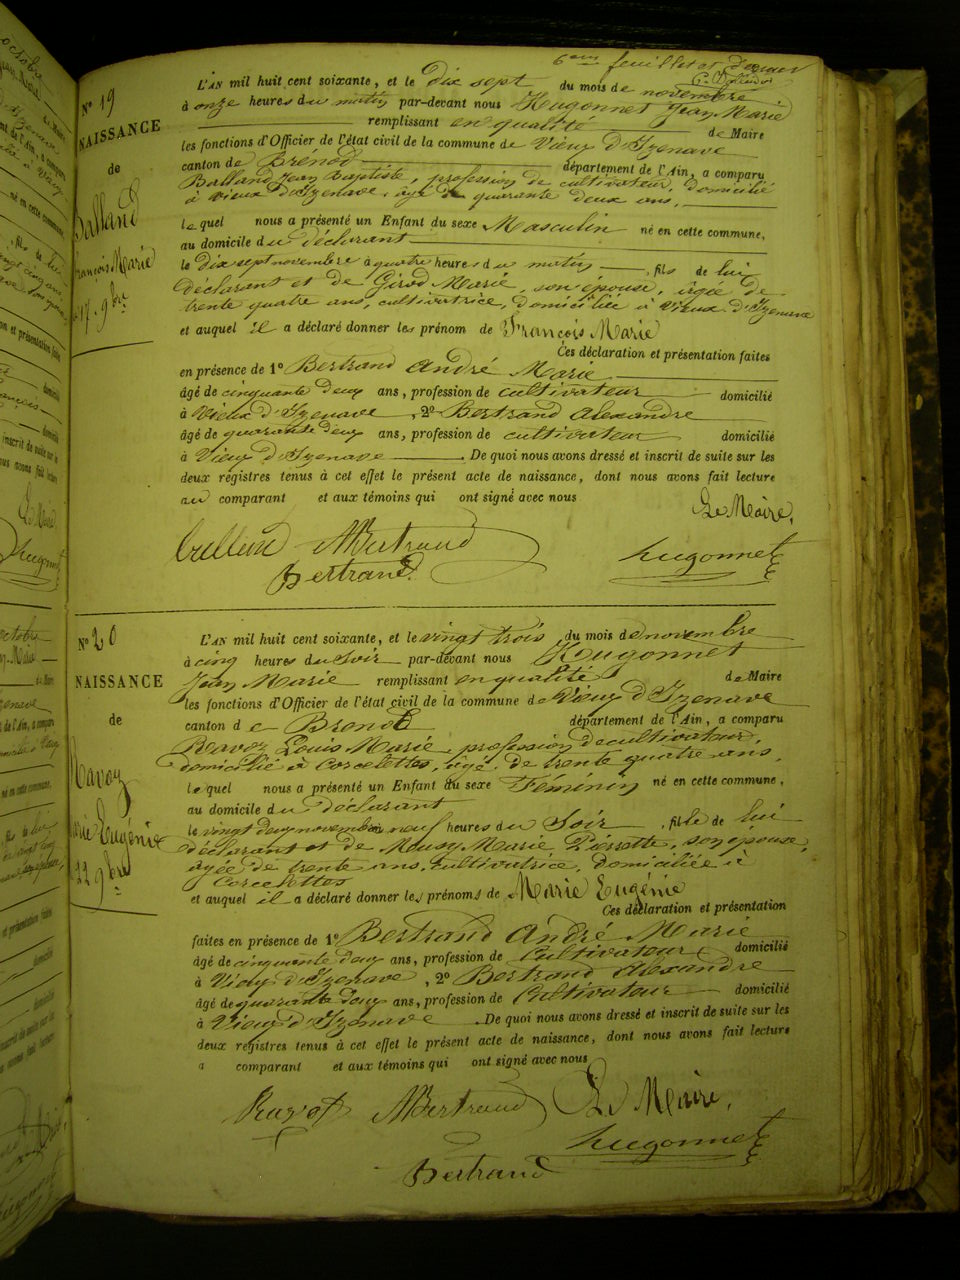 6eme feuillet et dernier
N° 19
NAISSANCE
de
Balland
François Marie
17 9bre
L'AN mil huit cent soixante, et le dix sept du mois de novembre
à onze heures du matin par-devant nous Hugonnet Jean Marie
remplissant en qualité de Maire
les fonctions d'Officier de l'état civil de la commune de Vieux d'Izenave
canton de Brénod département de l'Ain, a comparu
Balland Jean Baptiste, profession de cultivateur, domicilié
à Vieux d'Izenave, âgé de quarante deux ans,
lequel nous a présenté un Enfant du sexe Masculin né en cette commune,
au domicile du déclarant
le dix sept novembre à quatre heures du matin, fils de lui
déclarant et de Girod Marie, son épouse, âgée de
trente quatre ans, cultivatrice, domiciliée à Vieux d'Izenave
et auquel il a déclaré donner les prénom de François Marie
Ces déclaration et présentation faites
en présence de 1° Bertrand André Marie
âgé de cinquante deux ans, profession de cultivateur domicilié
à Vieux d'Izenave, 2° Bertrand Alexandre
âgé de quarante deux ans, profession de cultivateur domicilié
à Vieux d'Izenave. De quoi nous avons dressé et inscrit de suite sur les
deux registres tenus à cet effet le présent acte de naissance, dont nous avons fait lecture
au comparant et aux témoins qui ont signé avec nous
Le Maire,
Balland ABertrand Hugonnet
Bertrand
N° 20
NAISSANCE
de
Ravoz
Marie Eugénie
22 9bre
L'AN mil huit cent soixante, et le vingt trois du mois de novembre
à cinq heures du soir par-devant nous Hugonnet
Jean Marie remplissant en qualité de Maire
les fonctions d'Officier de l'état civil de la commune de Vieux d'Izenave
canton de Brenod département de l'Ain, a comparu
Ravoz Louis Marie, profession de cultivateur,
domicilié à Corcelettes, âgé de trente quatre ans,
lequel nous a présenté un Enfant du sexe Féminin né en cette commune,
au domicile du déclarant
le vingt deux novembre neuf heures du Soir, fille de lui
déclarant et de Marie Pierrette, son épouse,
âgée de trente ans, cultivatrice, domiciliée à
Corcelettes
et auquel il a déclaré donner les prénoms de Marie Eugénie
Ces déclaration et présentation
faites en présence de 1° Bertrand André Marie
âgé de cinquante deux ans, profession de Cultivateur domicilié
à Vieux d'Izenave, 2° Bertrand Alexandre
âgé de quarante deux ans, profession de Cultivateur domicilié
à Vieux d'Izenave. De quoi nous avons dressé et inscrit de suite sur les
deux registres tenus à cet effet le présent acte de naissance, dont nous avons fait lecture
a comparant et aux témoins qui ont signé avec nous
Ravot ABertrand Le Maire,
Hugonnet
Bertrand